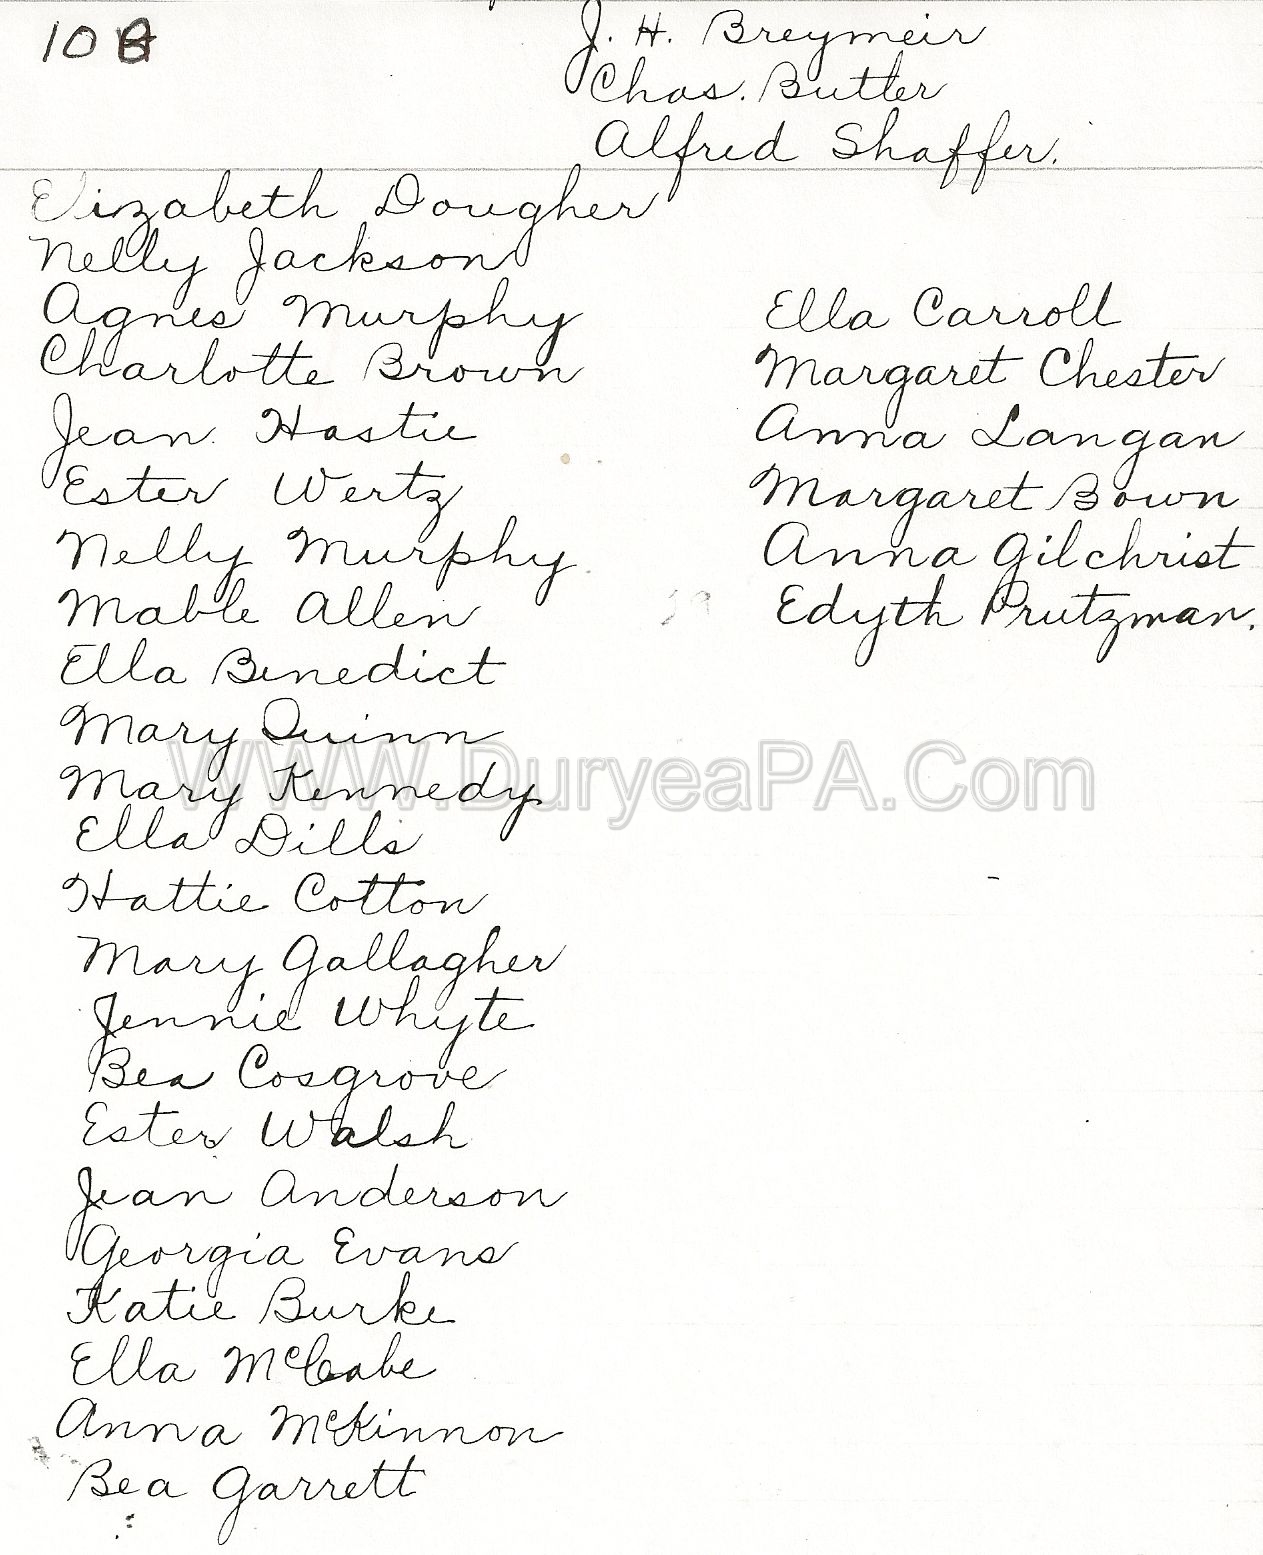 10 B
J. H. Breymeir
Chas. Butler
Alfred Shaffer.
Elizabeth Dougher
Nelly Jackson
Agnes Murphy
Charlotte Brown
Jean Hastie
Ester Wertz
Nelly Murphy
Mable Allen
Ella Benedict
Mary Quinn
Mary Kennedy
Ella Dills
Hattie Cotton
Mary Gallagher
Jennie Whyte
Bea Cosgrove
Ester Walsh
Jean Anderson
Georgia Evans
Katie Burke
Ella McCabe
Anna McKinnon
Bea Garrett
Ella Carroll
Margaret Chester
Anna Langan
Margaret Bown
Anna Gilchrist
Edyth Prutzman.
WWW.DuryeaPA.Com